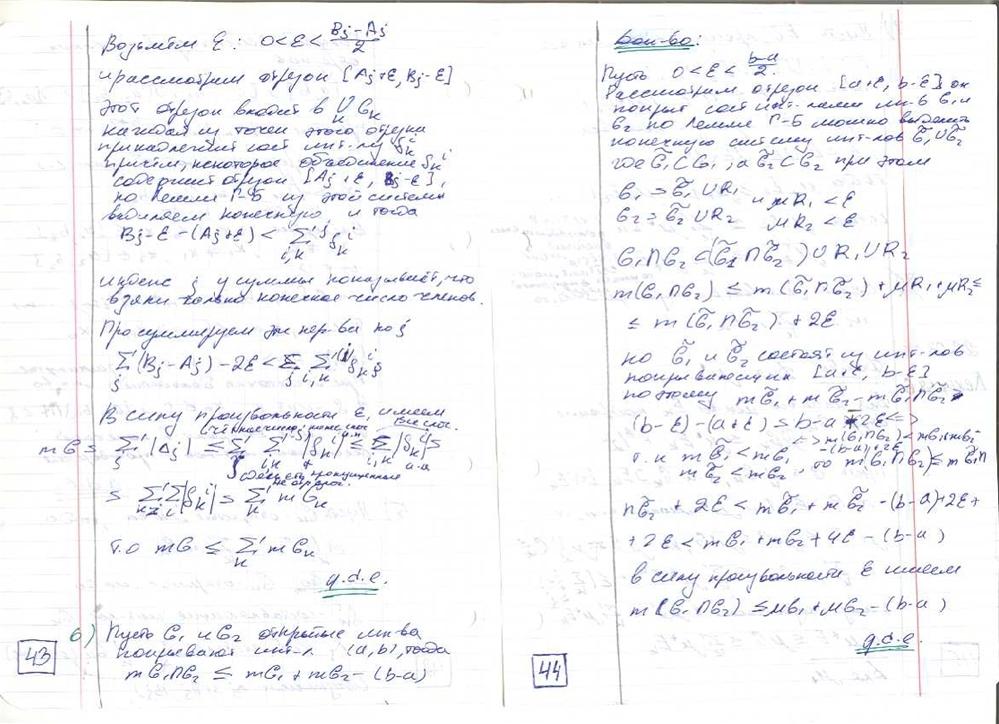 Возьмём ε: 0<ε<(Bj-Aj)/2
и рассмотрим отрезок [Aj+ε, Bj-ε]
Этот отрезок входит в ∪Gk
k
каждая из точек этого отрезка
принадлежит сост инт-лу δk^i
причём, некоторое объединение δk^i
содержит отрезок [Aj+ε, Bj-ε],
по лемме Г-Б из этой системы
выделяем конечную, и тогда
Bj-ε-(Aj+ε) < Σ'^j δk^i
i,k
индекс j у суммы показывает, что
взяты только конечное число членов.
Просуммируем эти нер-ва по j
Σ(Bj-Aj)-2ε < Σ Σ'^(j) δk^i
j j i,k
В силу произвольности ε, имеем
mG = Σ|Δj| ≤ Σ Σ^(j)|δk^i| ≤ Σ|δk^i| =
= Σ Σ|δk^i| = Σ mGk
k i k
т.о mG ≤ Σ mGk
k
q.d.e.
6) Пусть G1 и G2 открытые мн-ва
покрывают инт-л (a,b), тогда
mG1∩G2 ≤ mG1+mG2-(b-a)
43
Док-во:
Пусть 0<ε<(b-a)/2.
Рассмотрим отрезок [a+ε, b-ε] он
покрыт сост инт-лами мн-в G1 и
G2 по лемме Г-Б можно выделить
конечную систему инт-лов G̃1∪G̃2
где G̃1⊂G1, а G̃2⊂G2 при этом
G1=G̃1∪R1 и μR1<ε
G2=G̃2∪R2 μR2<ε
G1∩G2⊂(G̃1∩G̃2)∪R1∪R2
m(G1∩G2) ≤ m(G̃1∩G̃2)+μR1+μR2 ≤
≤ m(G̃1∩G̃2)+2ε
но G̃1 и G̃2 состоят из инт-лов
покрывающих [a+ε, b-ε]
поэтому mG̃1+mG̃2-mG̃1∩G̃2>
(b-ε)-(a+ε)=b-a-2ε<=>
<=>m(G̃1∩G̃2)<mG̃1+mG̃2-
-(b-a)+2ε
т.к mG̃1<mG1
mG̃2<mG2, то m(G1∩G2)≤mG̃1∩
∩G̃2+2ε<mG̃1+mG̃2-(b-a)+2ε+
+2ε<mG1+mG2+4ε-(b-a)
в силу произвольности ε имеем
m(G1∩G2)≤μG1+μG2-(b-a)
q.d.e.
44